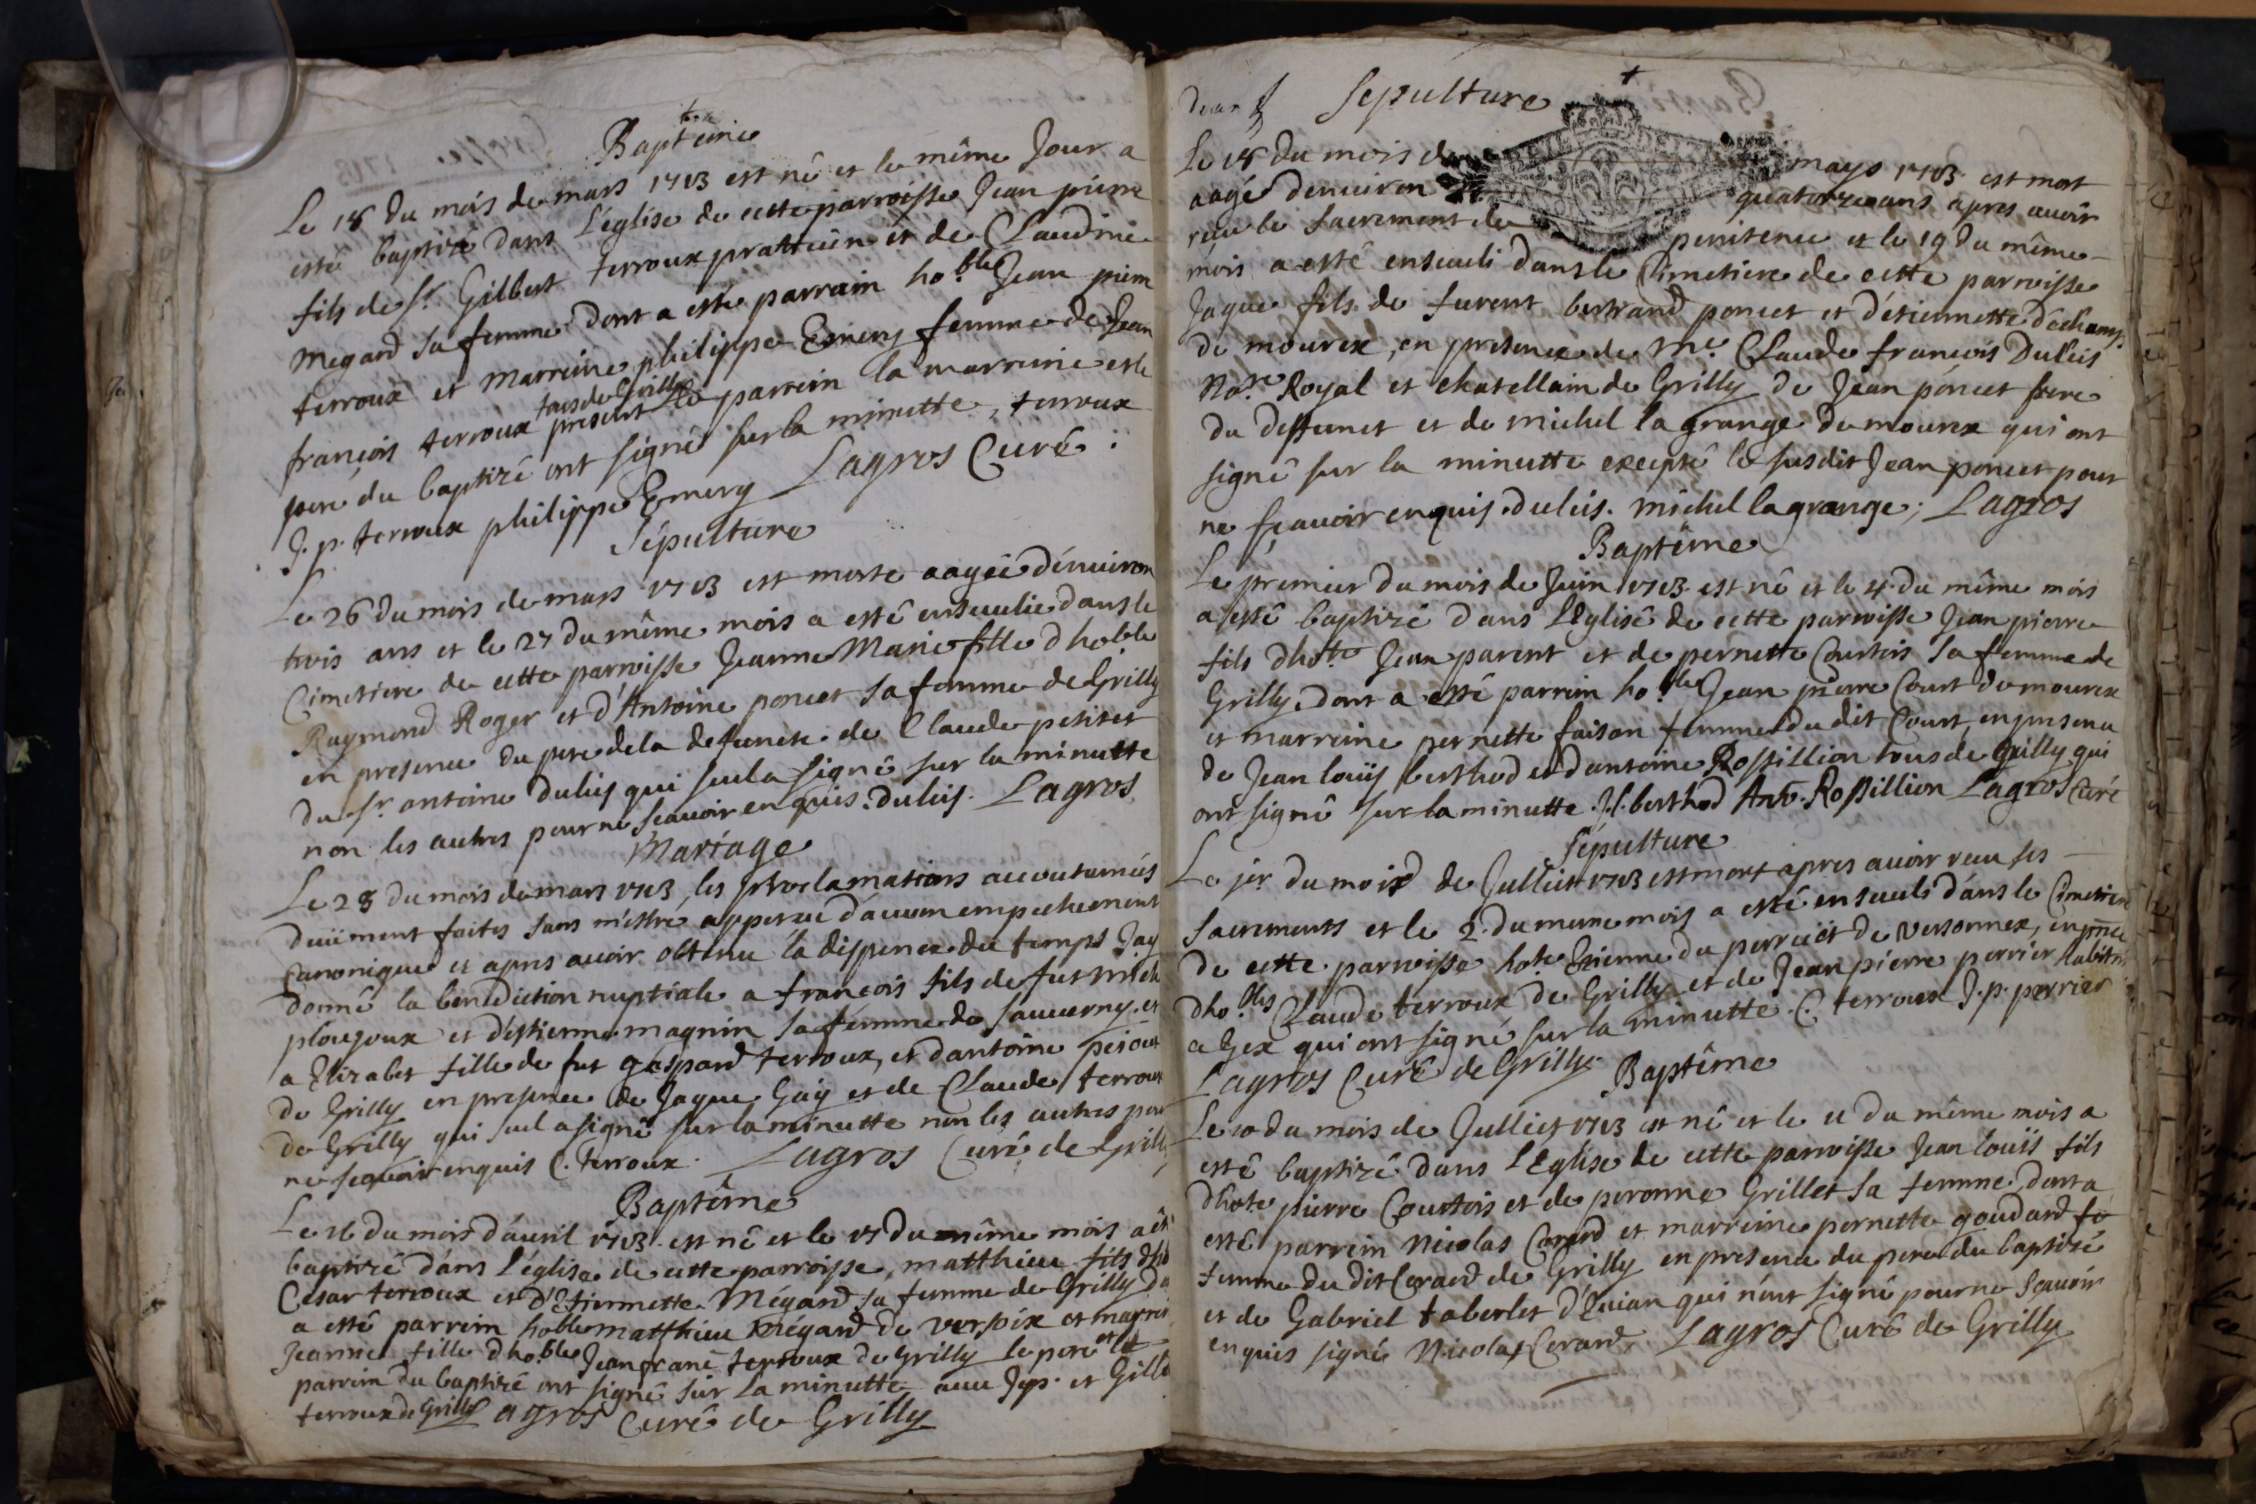 Baptême
Le 18 du mois de mars 1713 est né et le même Jour a
esté baptizé dans L'église de cette parroisse Jean pierre
fils de Sr. Gilbert terroux pratticien et de Claudine
Megard sa femme dont a esté parrain ho.ble Jean pierre
terroux et marreine philippe Emery femme de Jean
tous de Grilly
françois terroux present le parrein la marreine et le
pere du baptizé ont signé sur la minutte, terroux
J. p. terroux philippe Emery Lagros Curé
Sépulture
Le 26 du mois de mars 1713 est morte aagée d'enuiron
trois ans et le 27 du même mois a esté enseuelie dans le
Cimetiere de cette parroisse Jeanne Marie fille d'ho.ble
Raymond Roger et d'Antoine poncet sa femme de Grilly
en presence du pere de la defuncte de Claude petitet
du Sr. antoine duluis qui seul a signé sur la minutte
non les autres pour ne sçauoir enquis. duluis. Lagros
Mariage
Le 28 du mois de mars 1713, les proclamations accoutumées
duüment faites sans m'estre apperçu d'aucun empechement
canonique et apres auoir obtenu la dispence du temps J'ay
donné la benediction nuptiale a françois fils de fut
ploujoux et d'estienne magnin sa femme de sauuerny et
a Elizabet fille de fut gaspard terroux, et d'antoine
de Grilly en presence de Jaque Gay et de Claude terroux
de Grilly qui seul a signé sur la minutte non les autres pour
ne sçauoir enquis C. terroux. Lagros Curé de Grilly
Baptême
Le 16 du mois d'auril 1713 est né et le 17 du même mois a
baptizé dans L'église de cette parroisse, matthieu fils
Cesar terroux et d'Etiennette Mégard sa femme de Grilly
a esté parrein ho.ble matthieu Mégard de versoix et
Jeanne fille d'ho.ble Jean franc terroux de Grilly le pere et le
parrein du baptizé ont signé sur la minutte auec J. p. et
terroux de Grilly Lagros Curé de Grilly
Sepulture
Le 18 du mois de mays 1713 est mort
aagé denuiron quatorze ans apres auoir
receu le sacrement de penitence et le 19 du même
mois a esté enseueli dans le Cimetiere de cette parroisse
Jaque fils de furent bertrand poncet et d'étiennette
de mourex, en presence de Me. Claude francois Duluis
No.re Royal et chatellain de Grilly de Jean poncet frere
du deffunct et de michel la grange de mourex qui ont
signé sur la minutte excepté le susdit Jean poncet pour
ne sçauoir enquis. duluis. michel lagrange; Lagros
Baptême
Le premier du mois de Juin 1713 est né et le 4. du même mois
a esté baptizé dans L'Eglise de cette parroisse Jean pierre
fils d'ho.te Jean parent et de pernette Courtois sa femme de
Grilly, dont a esté parrein ho.ble Jean pierre Court de mourex
et marreine pernette faison femme du dit Court, en presence
de Jean louïs berthod et d'antoine Rossillion tous de Grilly qui
ont signé sur la minutte. J. l. berthod Ant. Rossillion Lagros Curé
Sépulture
Le jer du mois de Julliet 1713 est mort apres auoir receu ses
sacrements et le 2. du meme mois a esté enseueli dans le Cimetiere
de cette parroisse ho.te Etienne du de versonnex, en pnce
d'ho.bles Claude terroux de Grilly et de Jean pierre perrier
a Gex qui ont signé sur la minutte. C. terroux J. p. perrier
Lagros Curé de Grilly
Baptême
Le 10 du mois de Julliet 1713 est né et le 11 du même mois a
esté baptizé dans L'Eglise de cette parroisse Jean louïs fils
d'hote pierre Courtois et de peronne Grillet sa femme, dont a
esté parrein Nicolas Cerard et marreine pernette goudard
femme du dit Cerard de Grilly en presence du pere du baptizé
et de Gabriel taberlet d'Euian qui n'ont signé pour ne sçauoir
enquis signé Nicolas Cerard Lagros Curé de Grilly